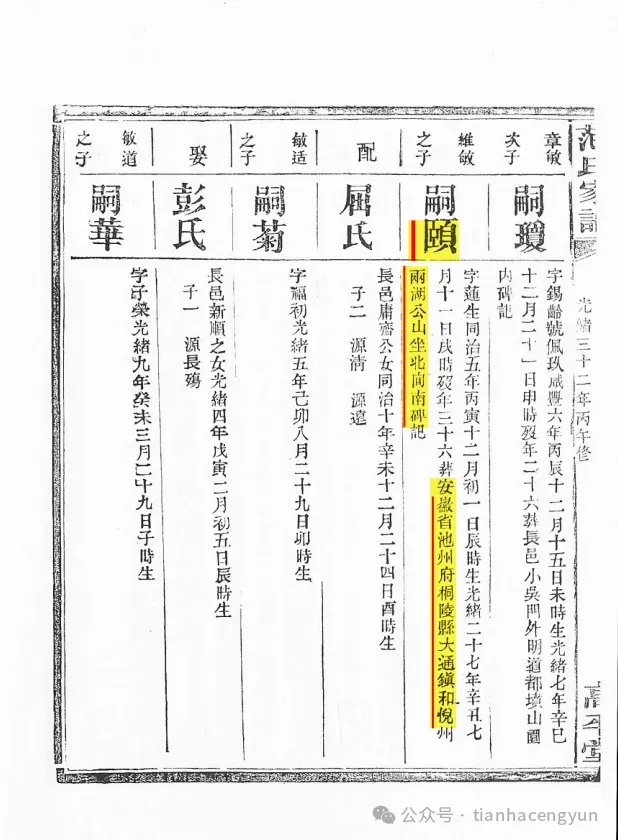 范氏家譜
光緒三十二年丙午修
高平堂
章敏
次子
嗣瓊
字錫齡號佩玖咸豐六年丙辰十二月十五日未時生光緒七年辛巳
十二月二十一日申時歿年二十六葬長邑小吳門外明道都墳山圍
內碑記
維敏
之子
嗣頤
字蓮生同治五年丙寅十二月初一日辰時生光緒二十七年辛丑七
月十一日戌時歿年三十六葬安徽省池州府桐陵縣大通鎮和悅州
兩湖公山坐北向南碑記
配
屈氏
長邑庸齋公女同治十年辛未十二月二十四日酉時生
子二 源淸 源遠
敏适
之子
嗣菊
字福初光緒五年己卯八月二十九日卯時生
娶
彭氏
長邑新順之女光緒四年戊寅二月初五日辰時生
子一 源長殤
敏道
之子
嗣華
字子榮光緒九年癸未三月二十九日子時生
公众号 · tianhacengyun